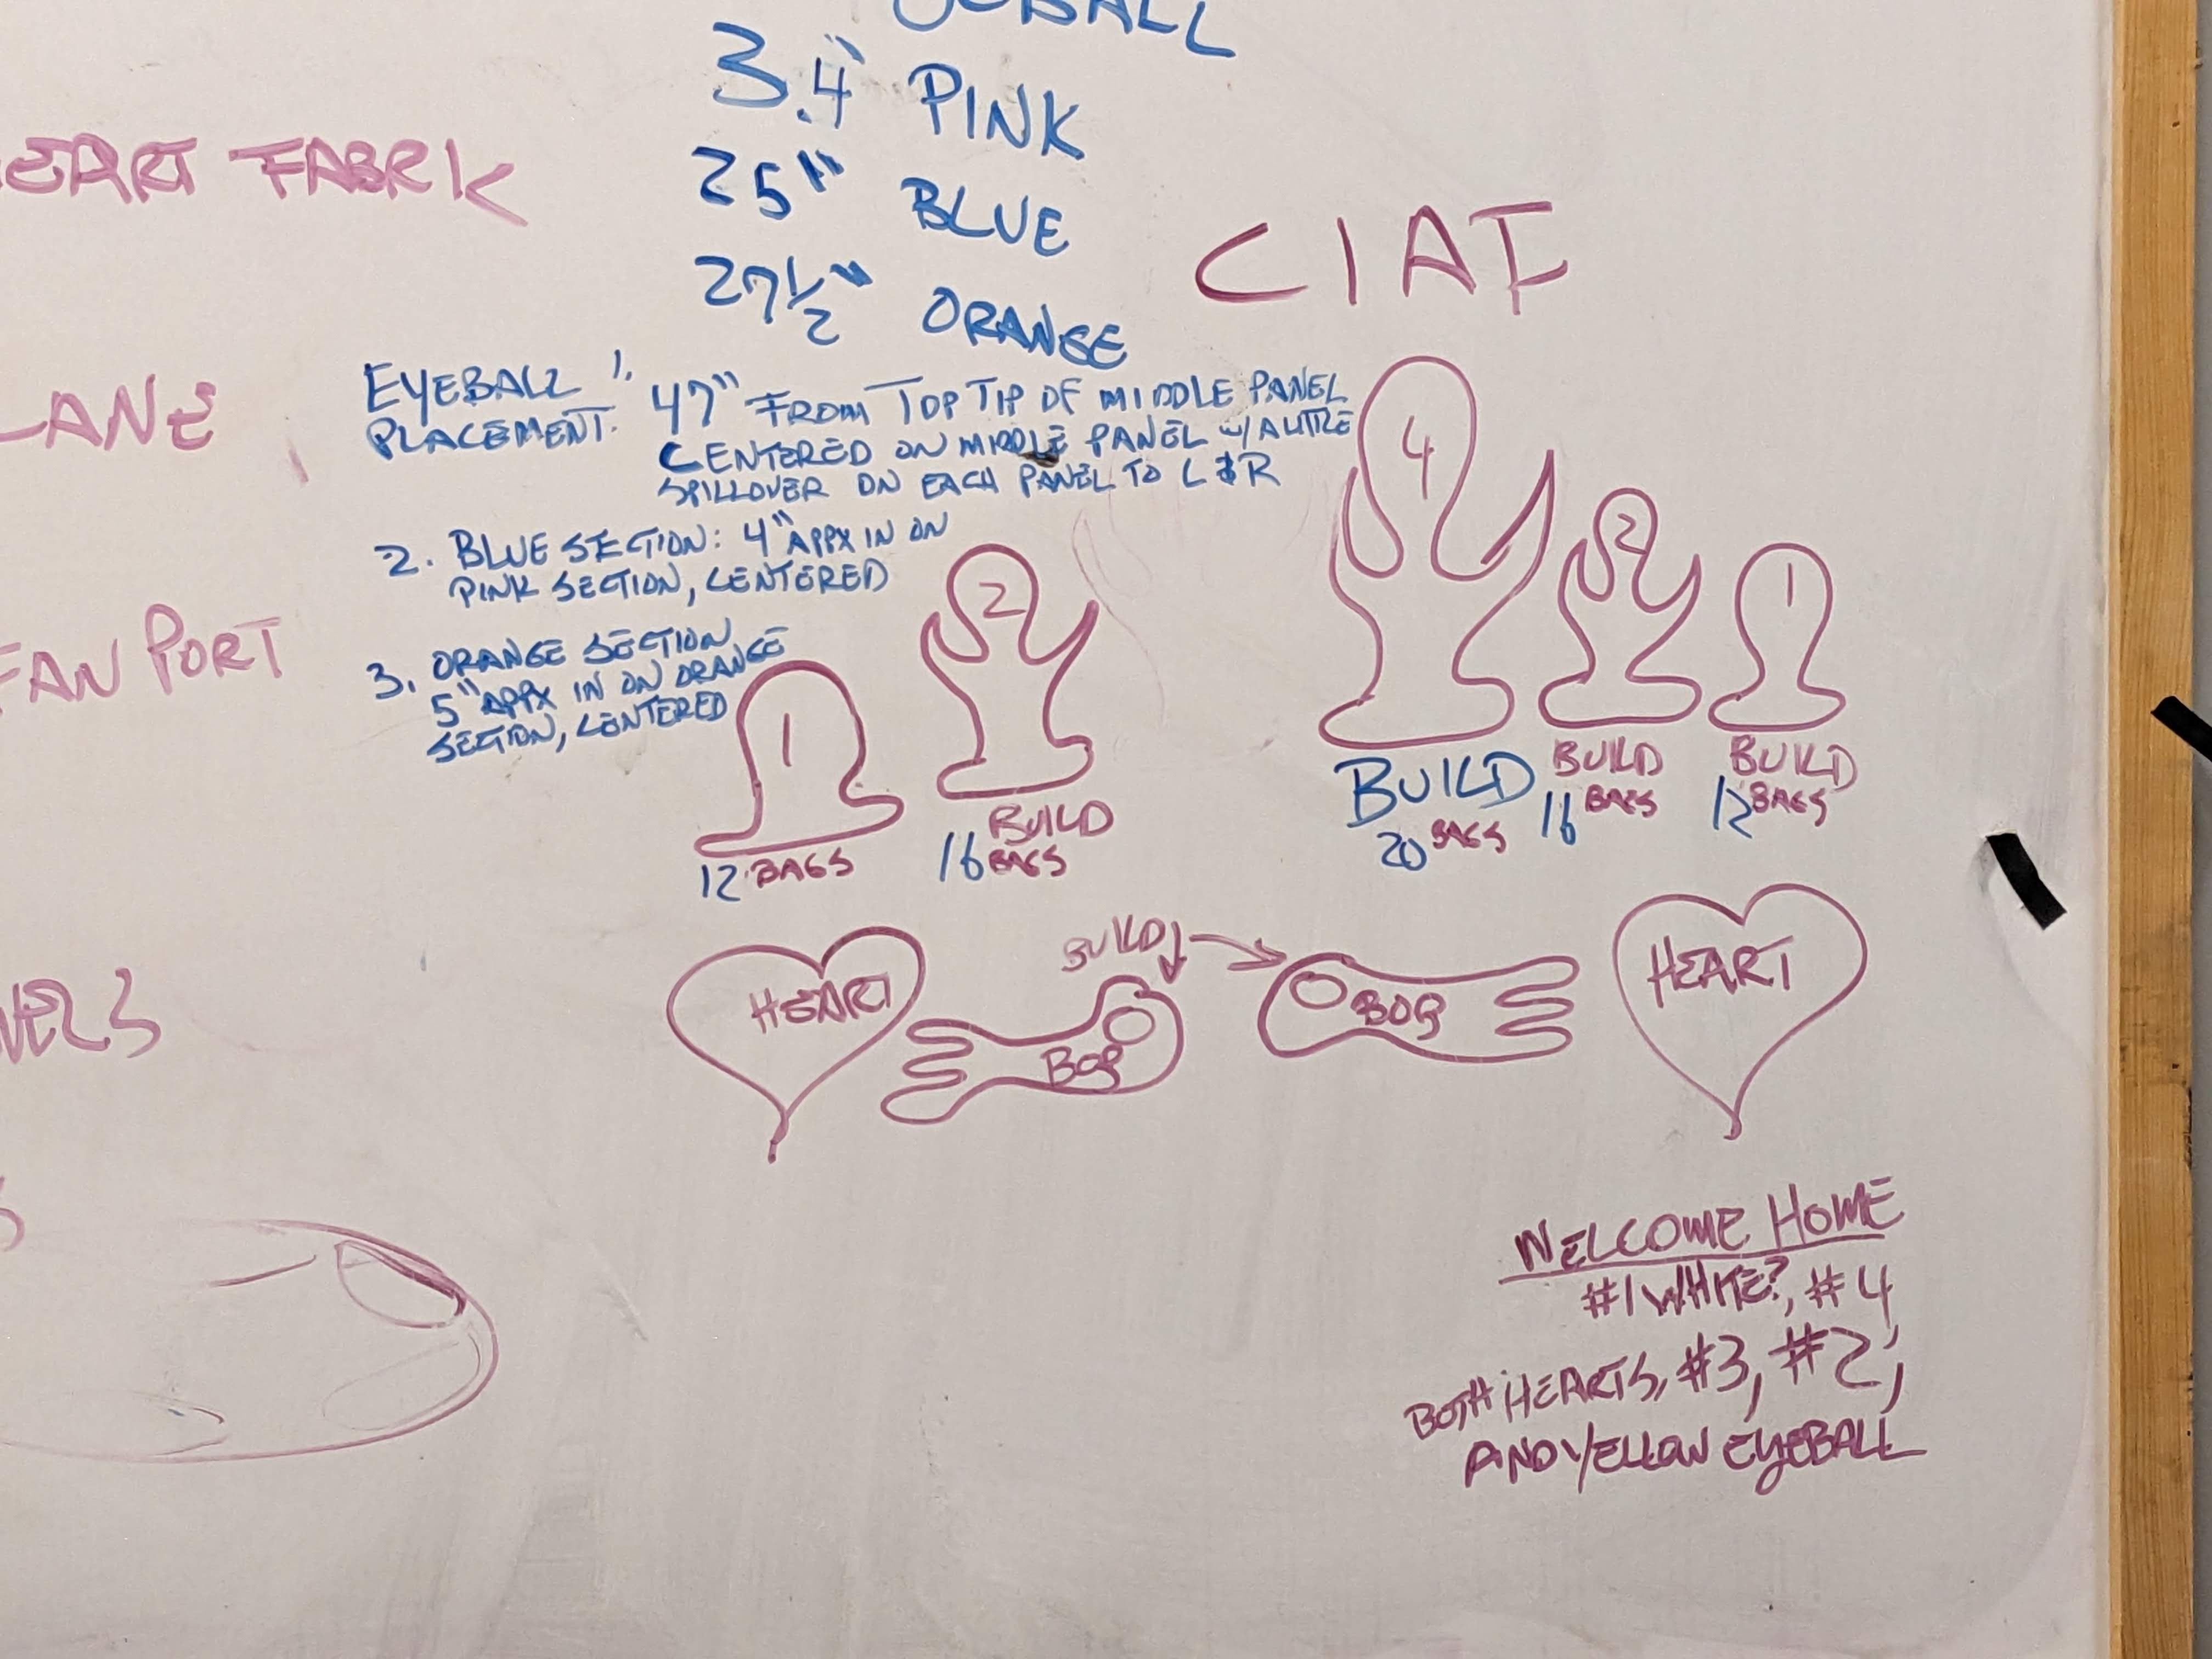 EYEBALL
3.4" PINK
25" BLUE
27 1/2" ORANGE
EART FABRIK
LANE
FAN PORT
EYEBALL PLACEMENT:
1. 47" FROM TOP TIP OF MIDDLE PANEL
CENTERED ON MIDDLE PANEL W/ A LITTLE
SPILLOVER ON EACH PANEL TO L & R
2. BLUE SECTION: 4" APPX IN ON
PINK SECTION, CENTERED
3. ORANGE SECTION
5" APPX IN ON ORANGE
SECTION, CENTERED
CIAF
1
12 BAGS
2
BUILD
16 BAGS
4
BUILD
20 BAGS
2
BUILD
16 BAGS
1
BUILD
12 BAGS
HEART
BUILD
BOP
BOP
HEART
WELCOME HOME
#1 WHITE?, #4
BOTH HEARTS, #3, #2,
AND YELLOW EYEBALL